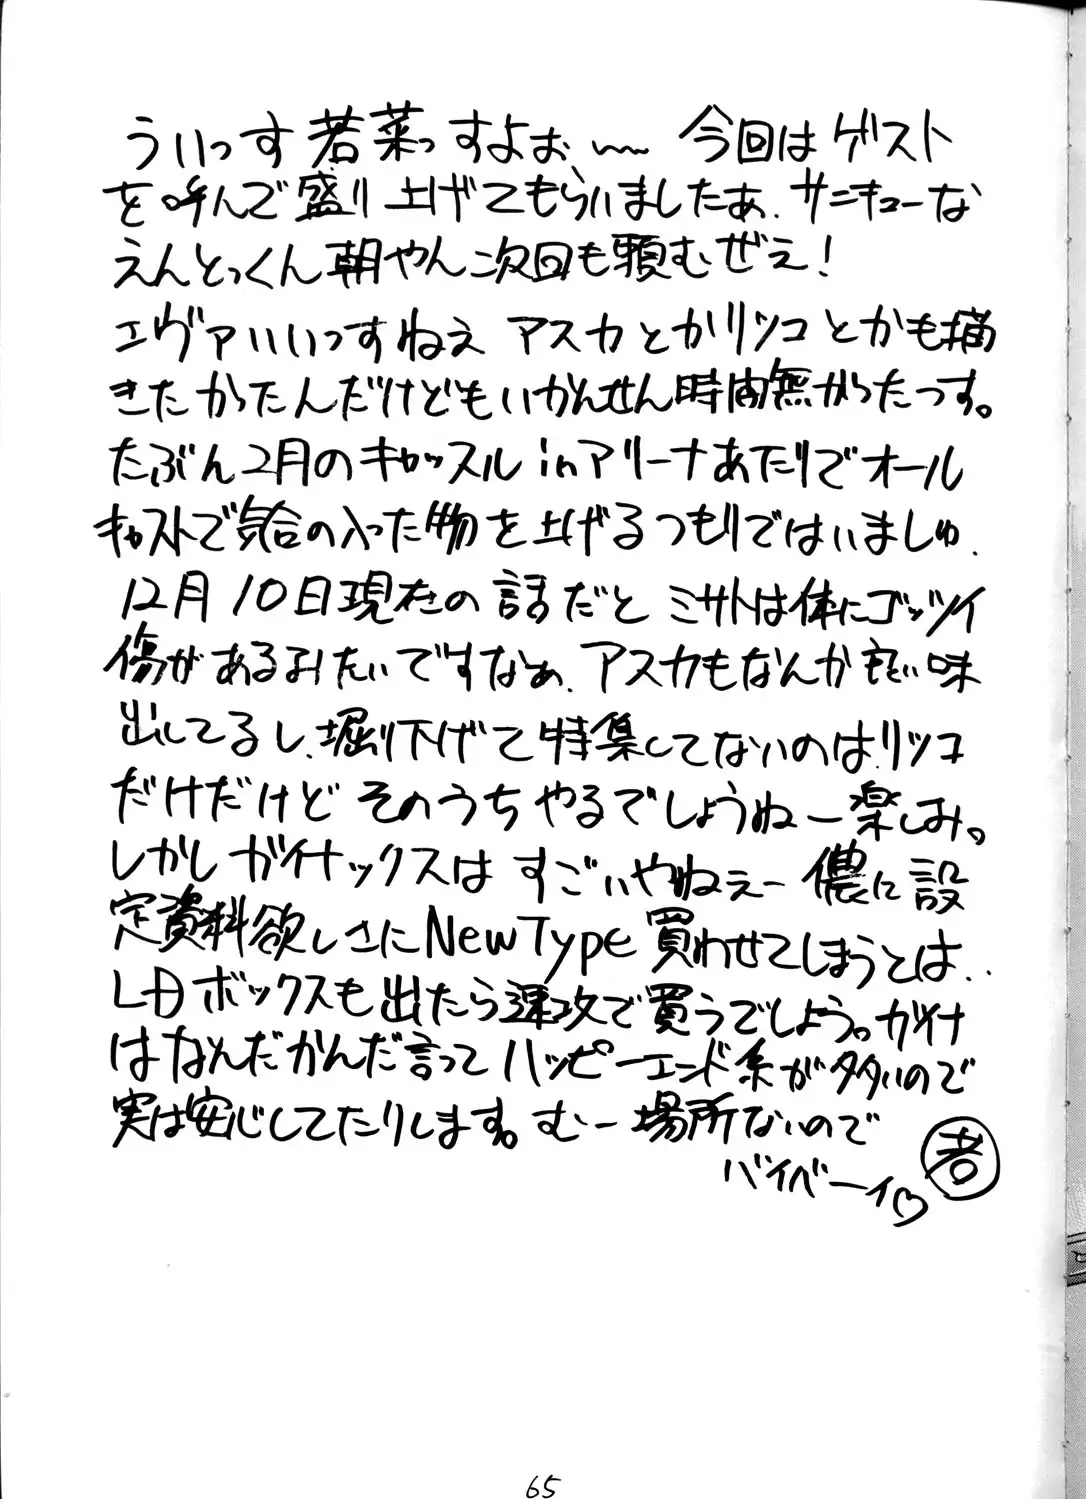 ういっす若菜っすよぉ、〜 今回はゲスト
を呼んで盛り上げてもらいましたあ、サニキューな
えんとっくん朝やん次回も頼むぜえ！
エヴァいいっすねえ アスカとかリツコとかも描
きたかったんだけどもいかんせん時間無かったっす。
たぶん2月のキャッスルinアリーナあたりでオール
キャストで気合の入った物を上げるつもりではいましゅ、
12月10日現在の話だと ミサトは体にゴッツイ
傷があるみたいですなぁ、アスカもなんか良い味
出してるし、堀り下げて特集してないのは、リツコ
だけだけど そのうちやるでしょうねー楽しみ。
しかしガイナックスは すごいやねぇー 儂に設
定資料欲しさにNewType買わせてしまうとは..
LDボックスも出たら速攻で買うでしょう。ガイナ
はなんだかんだ言ってハッピーエンド系が多いので
実は安心してたりします。むー場所ないので
バイベーイ♡ 若
65